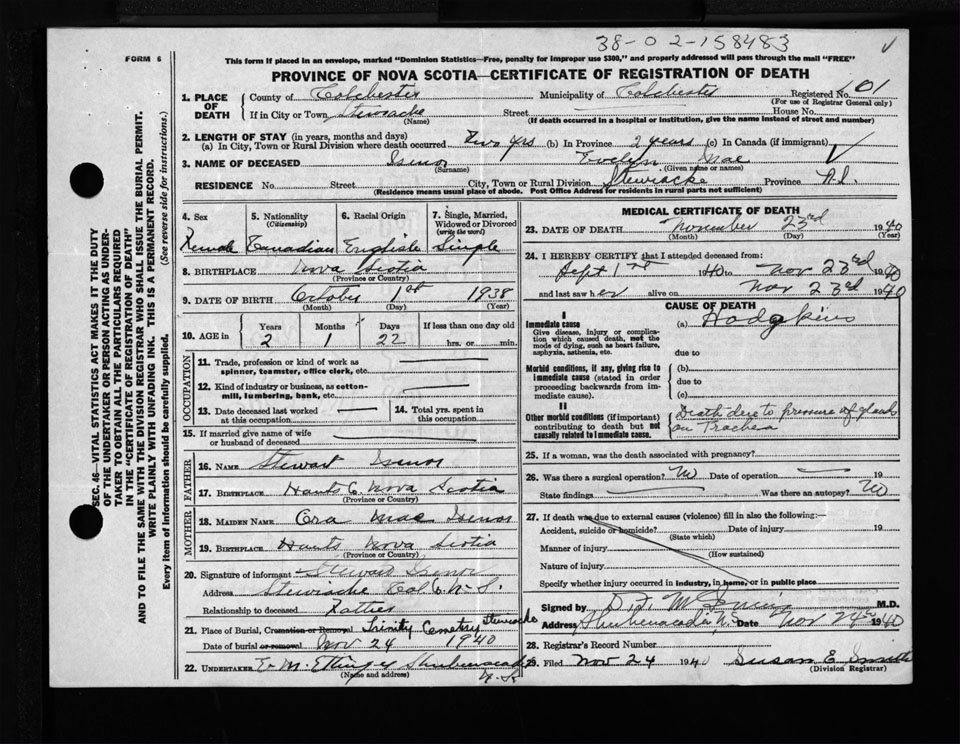 38-02-158483
FORM 6
This form if placed in an envelope, marked "Dominion Statistics—Free, penalty for improper use $300," and properly addressed will pass through the mail "FREE"
PROVINCE OF NOVA SCOTIA—CERTIFICATE OF REGISTRATION OF DEATH
1. PLACE OF DEATH
County of Colchester Municipality of Colchester Registered No. 101
(For use of Registrar General only)
If in City or Town Stewiacke Street House No.
(Name) (If death occurred in a hospital or institution, give the name instead of street and number)
2. LENGTH OF STAY (in years, months and days)
(a) In City, Town or Rural Division where death occurred Two yrs (b) In Province 2 years (c) In Canada (if immigrant)
3. NAME OF DECEASED Isenor Evelyn Mae
(Surname) (Given name or names)
RESIDENCE No. Street City, Town or Rural Division Stewiacke Province N.S.
(Residence means usual place of abode. Post Office Address for residents in rural parts not sufficient)
4. Sex
Female
5. Nationality
(Citizenship)
Canadian
6. Racial Origin
English
7. Single, Married, Widowed or Divorced
(write the word)
Single
8. BIRTHPLACE Nova Scotia
(Province or Country)
9. DATE OF BIRTH October 1st 1938
(Month) (Day) (Year)
10. AGE in Years Months Days If less than one day old
2 1 22 hrs. or min.
OCCUPATION
11. Trade, profession or kind of work as spinner, teamster, office clerk, etc.
12. Kind of industry or business, as cotton-mill, lumbering, bank, etc.
13. Date deceased last worked at this occupation
14. Total yrs. spent in this occupation
15. If married give name of wife or husband of deceased
FATHER
16. NAME Stewart Isenor
17. BIRTHPLACE Hants C. Nova Scotia
(Province or Country)
MOTHER
18. MAIDEN NAME Ora Mae Isenor
19. BIRTHPLACE Hants Nova Scotia
(Province or Country)
20. Signature of informant Stewart Isenor
Address Stewiacke Col Co N.S.
Relationship to deceased Father
21. Place of Burial, Cremation or Removal Trinity Cemetry Stewiacke
Date of burial or removal Nov 24 1940
22. UNDERTAKER E. M. Ettinger Shubenacadie
(Name and address) N.S.
MEDICAL CERTIFICATE OF DEATH
23. DATE OF DEATH November 23rd 1940
(Month) (Day) (Year)
24. I HEREBY CERTIFY that I attended deceased from:
Sept 1st 1940 to Nov 23rd 1940
and last saw her alive on Nov 23rd 1940
CAUSE OF DEATH
I
Immediate cause (a) Hodgkins
Give disease, injury or complication which caused death, not the mode of dying, such as heart failure, asphyxia, asthenia, etc.
due to
Morbid conditions, if any, giving rise to immediate cause (stated in order proceeding backwards from immediate cause).
(b)
due to
(c)
II
Other morbid conditions (if important) contributing to death but not causally related to immediate cause.
Death due to pressure of glands
on Trachea
25. If a woman, was the death associated with pregnancy?
26. Was there a surgical operation? No Date of operation 19
State findings Was there an autopsy? No
27. If death was due to external causes (violence) fill in also the following:—
Accident, suicide or homicide? Date of injury 19
(State which)
Manner of injury
(How sustained)
Nature of injury
Specify whether injury occurred in industry, in home, or in public place
Signed by M.D.
Address Shubenacadie N.S. Date Nov 24th 1940
28. Registrar's Record Number
29. Filed Nov 24 1940 Susan E. Smith
(Division Registrar)
SEC. 46—VITAL STATISTICS ACT MAKES IT THE DUTY
OF THE UNDERTAKER OR PERSON ACTING AS UNDER-
TAKER TO OBTAIN ALL THE PARTICULARS REQUIRED
IN THE "CERTIFICATE OF REGISTRATION OF DEATH"
AND TO FILE THE SAME WITH THE DIVISION REGISTRAR WHO SHALL ISSUE THE BURIAL PERMIT.
WRITE PLAINLY WITH UNFADING INK. THIS IS A PERMANENT RECORD.
Every item of information should be carefully supplied. (See reverse side for instructions.)